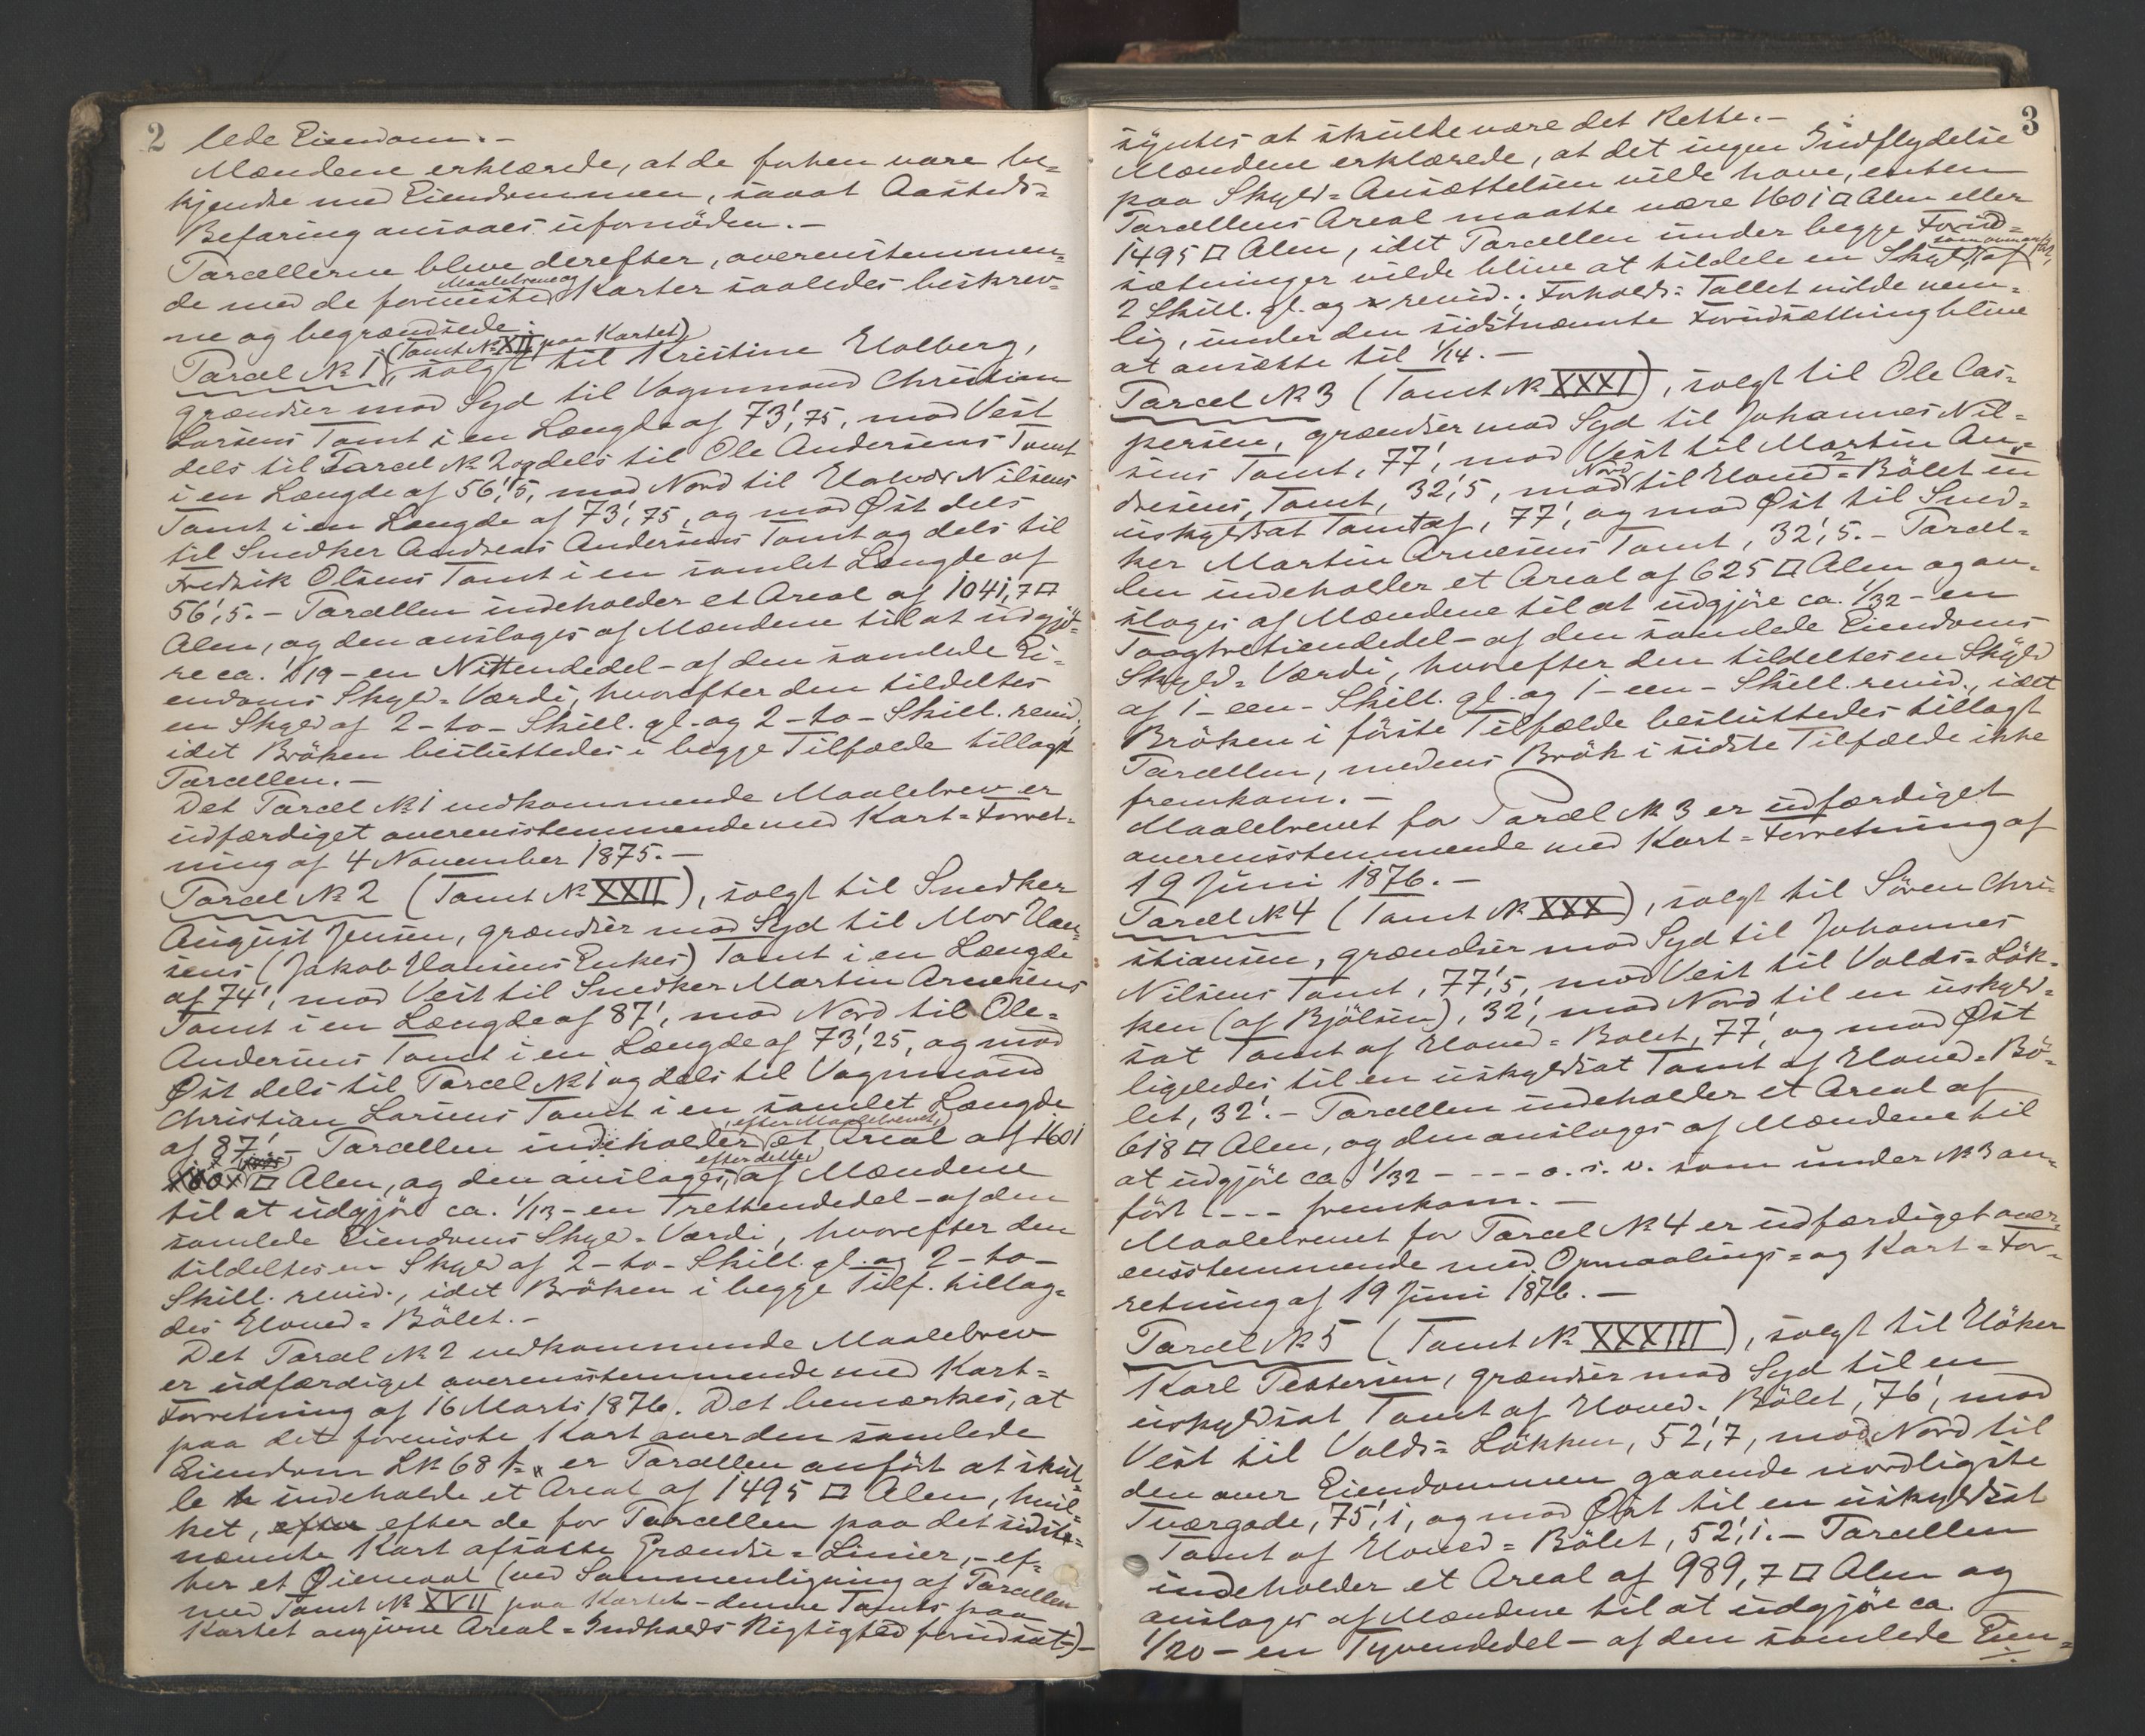 2
lede Eiendom.-
Mændene erklærede, at de forhen vare be=
kjendte med Eiendommen, saaat Aasteds=
Befaring ansaaes ufornöden.-
Parcellerne bleve derefter, overenstemmen=
de med de foreviste Maalebreve og Karter saaledes beskrev=
ne og begrændsede:
Parcel № 1 (Tomt № XII paa Kartet), solgt til Kristine Holberg,
grændser mod Syd til Vognmand Christian
Larsens Tomt i en Længde af 73',75, mod Vest
dels til Parcel № 2 og dels til Ole Andersens Tomt
i en Længde af 56',5, mod Nord til Halvor Nilsens
Tomt i en Længde af 73',75, og mod Øst dels
til Snedker Andreas Andersens Tomt og dels til
Fredrik Olsens Tomt i en samlet Længde af
56',5.- Parcellen indeholder et Areal af 1041,7 □
Alen, og den anslages af Mændene til at udgjö=
re ca. 1/19 - en Nittendedel - af den samlede Ei=
endoms Skyld=Værdi, hvorefter den tildeltes
en Skyld af 2 - to - Skill. gl. og 2 - to - Skill. revid.,
idet Bröken besluttedes i begge Tilfælde tillagt
Parcellen.-
Det Parcel № 1 vedkommende Maalebrev er
udfærdiget overensstemmende med Kart=Forret=
ning af 4 November 1875.-
Parcel № 2 (Tomt № XXII), solgt til Snedker
August Jensen, grændser mod Syd til Mor Han=
sens (Jakob Hansens Enkes) Tomt i en Længde
af 74', mod Vest til Snedker Martin Arnesens
Tomt i en Længde af 87', mod Nord til Ole
Andersens Tomt i en Længde af 73',25, og mod
Øst dels til Parcel № 1 og dels til Vognmand
Christian Larsens Tomt i en samlet Længde
af 87'.- Parcellen indeholder, efter Maalebrevet, et Areal af 1601
□ Alen, og den anslages, efter dette, af Mændene
til at udgjöre ca. 1/13 - en Trettendedel - af den
samlede Eiendoms Skyld=Værdi, hvorefter den
tildeltes en Skyld af 2 - to - Skill. gl. og 2 - to -
Skill. revid., idet Bröken i begge Tilf. tillag=
des Hoved=Bölet.-
Det Parcel № 2 vedkommende Maalebrev
er udfærdiget overensstemmende med Kart=
Forretning af 16 Marts 1876. Det bemærkes, at
paa det foreviste Kart over den samlede
Eiendom L№ 68 er Parcellen anfört at skul=
le indeholde et Areal af 1495 □ Alen, hvil=
ket, efter de for Parcellen paa det sidst=
nævnte Kart afsatte Grændse=Linier, - ef=
ter et Øiemaal (ved Sammenligning af Parcellen
med Tomt № XVII paa Kartet - denne Tomts paa
Kartet angivne Areal=Indholds Rigtighed forudsat) -
3
syntes at skulde være det Rette.-
Mændene erklærede, at det ingen Indflydelse
paa Skyld=Ansættelsen vilde have, enten
Parcellens Areal maatte være 1601 □ Alen eller
1495 □ Alen, idet Parcellen under begge Forud=
sætninger vilde blive at tildele en Skyld, som ovenanfört, af
2 Skill. gl. og revid.; Forholds=Tallet vilde nem=
lig, under den sidstnævnte Forudsætning blive
at ansætte til 1/14.-
Parcel № 3 (Tomt № XXXI), solgt til Ole Cas=
persen, grændser mod Syd til Johannes Nil=
sens Tomt, 77', mod Vest til Martin An=
dresens Tomt, 32',5, mod Nord til Hoved=Bölet en
uskyldsat Tomt af, 77', og mod Øst til Sned=
ker Martin Arnesens Tomt, 32',5.- Parcel=
len indeholder et Areal af 625 □ Alen og an=
slages af Mændene til at udgjöre ca. 1/32 - en
Toogtretiendedel - af den samlede Eiendoms
Skyld=Værdi, hvorefter den tildeltes en Skyld
af 1 - een - Skill. gl. og 1 - een - Skill. revid., idet
Bröken i förste Tilfælde besluttedes tillagt
Parcellen, medens Brök i sidste Tilfælde ikke
fremkom.-
Maalebrevet for Parcel № 3 er udfærdiget
overensstemmende med Kart=Forretning af
19 Juni 1876.-
Parcel № 4 (Tomt № XXX), solgt til Sören Chri=
stiansen, grændser mod Syd til Johannes
Nilsens Tomt, 77',5, mod Vest til Volds=Lök=
ken (af Bjölsen), 32', mod Nord til en uskyld=
sat Tomt af Hoved=Bolet, 77', og mod Øst
ligeledes til en uskyldsat Tomt af Hoved=Bö=
let, 32'.- Parcellen indeholder et Areal af
618 □ Alen, og den anslages af Mændene til
at udgjöre ca. 1/32 - - - - o. s. v. som under № 3 an=
fört - - - - fremkom.-
Maalebrevet for Parcel № 4 er udfærdiget over=
ensstemmende med Opmaalings= og Kart=For=
retning af 19 Juni 1876.-
Parcel № 5 (Tomt № XXXIII), solgt til Höker
Karl Pettersen, grændser mod Syd til en
uskyldsat Tomt af Hoved=Bölet, 76', mod
Vest til Volds=Lökken, 52',7, mod Nord til
den over Eiendommen gaaende nordligste
Tværgade, 75',1, og mod Øst til en uskyldsat
Tomt af Hoved=Bölet, 52',1.- Parcellen
indeholder et Areal af 989,7 □ Alen og
anslages af Mændene til at udgjöre ca.
1/20 - en Tyvendedel - af den samlede Eien=